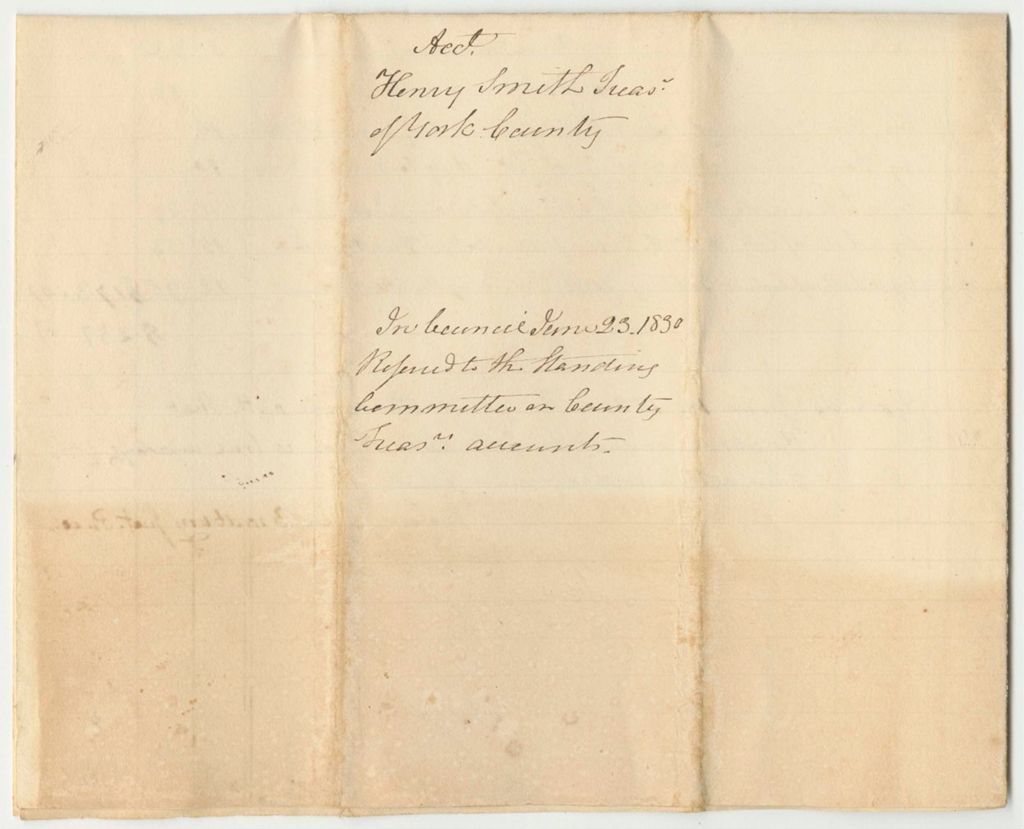 Acct.
Henry Smith Treasr
of York County
In Council June 23. 1830
Referred to the Standing
Committee on County
Treasrs accounts.